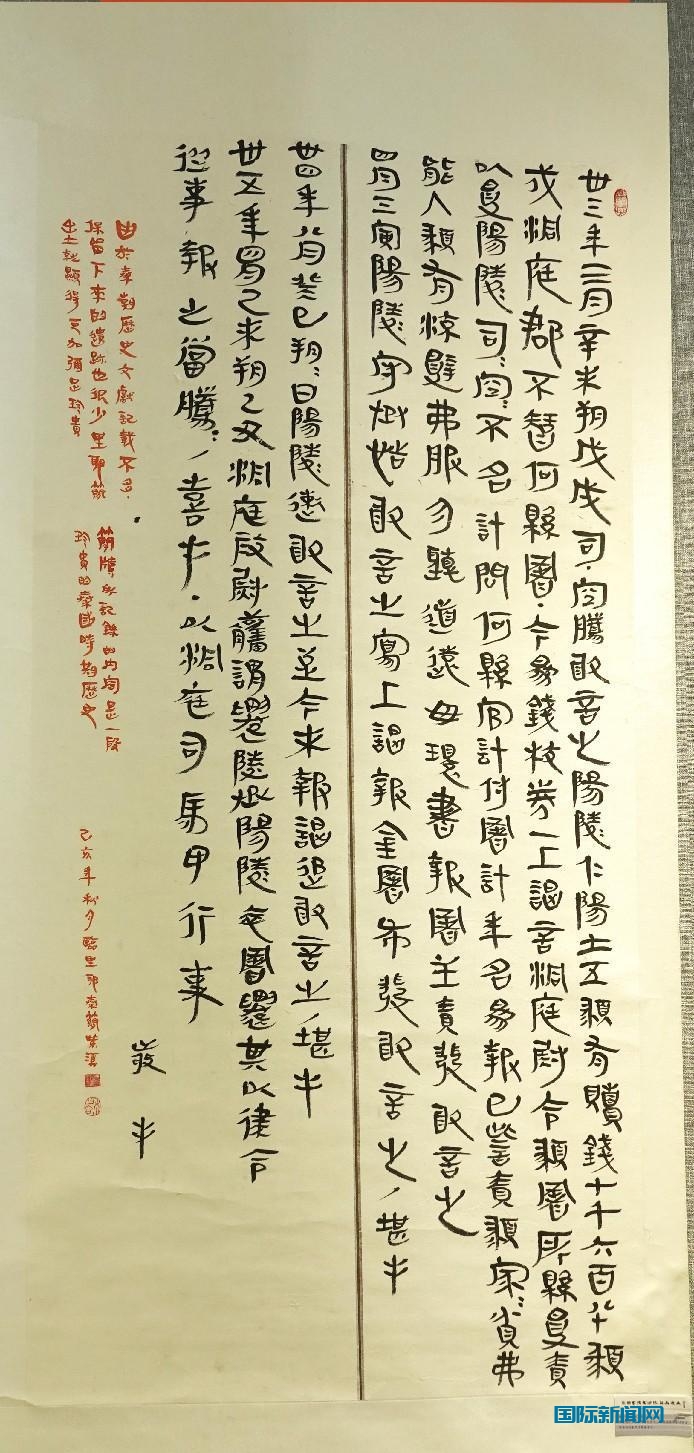 卅三年三月辛未朔戊戌司·空騰敢言之陽陵仁陽士五顤有贖錢十千六百八十顤
戍洞庭郡不智何縣署·今為錢校券一上謁言洞庭尉令顤署所縣受責
以受陽陵司=空=不名計問何縣官計付署計年名為報已訾責顤家=貧弗
能入顤有流辟弗服勿聽道遠毋環書報署主責發敢言之
四月壬寅陽陵守丞恬敢言之寫上謁報金署布發敢言之/堪手
卅四年八月癸巳朔=日陽陵遬敢言之至今未報謁追敢言之/堪手
卅五年四月己未朔乙丑洞庭叚尉觿謂遷陵丞陽陵卒署遷其以律令
從事報之當騰=/嘉手·以洞庭司馬甲行事
敬手
由於秦對歷史文獻記載不多，
保留下來的遺跡也很少里耶簡
出土就顯得更加彌足珍貴
簡牘所記錄的內容是一段
珍貴的秦國時期歷史
己亥年秋月臨里耶秦簡
国际新闻网